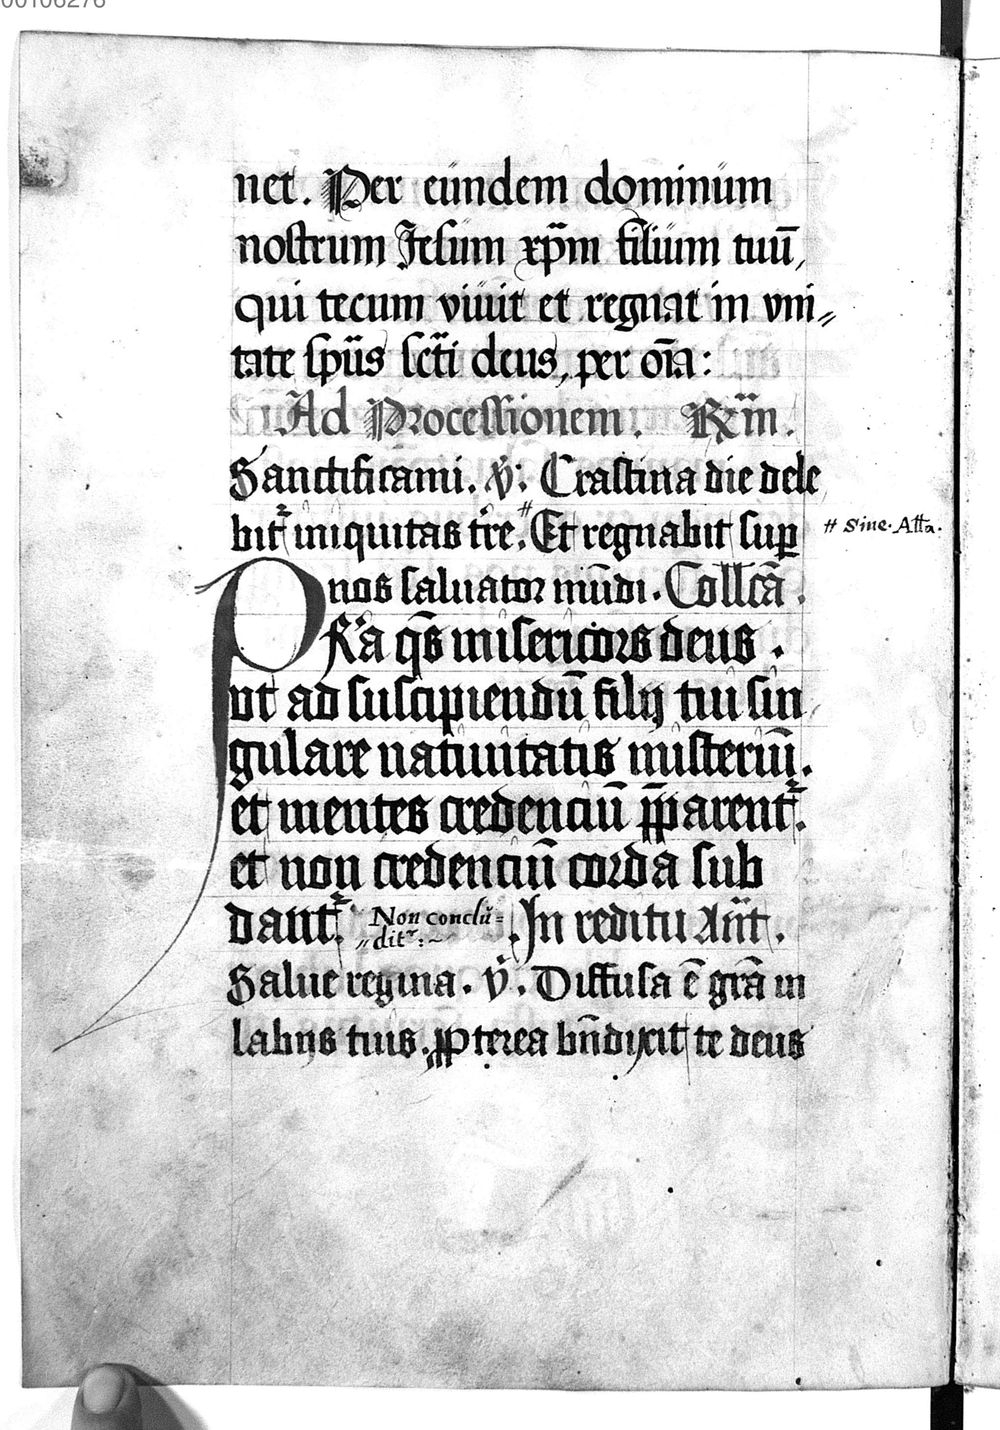 00106276
net. Per eundem dominum
nostrum Jesum xp̄m filium tuū,
qui tecum viuit et regnat in vni⸗
tate spūs scti deus, per oīa:
Ad Processionem. R̄m.
Sanctificami. v̄: Crastina die dele
bit̄ iniquitas tr̄e. # Et regnabit sup
# Sine. Alla.
nos saluator mūdi. Collcā.
PRa qs̄ misericors deus.
vt ad suscipiendū filij tui sin
gulare natiuitatis misteriū.
et mentes credenciū p̄parent̄.
et non credenciū corda sub
dant̄. Non conclu⸗
ditr:~ In reditu Añt.
Salue regina. v̄. Diffusa ē gr̄a in
labijs tuis. ꝓpterea bn̄dixit te deus